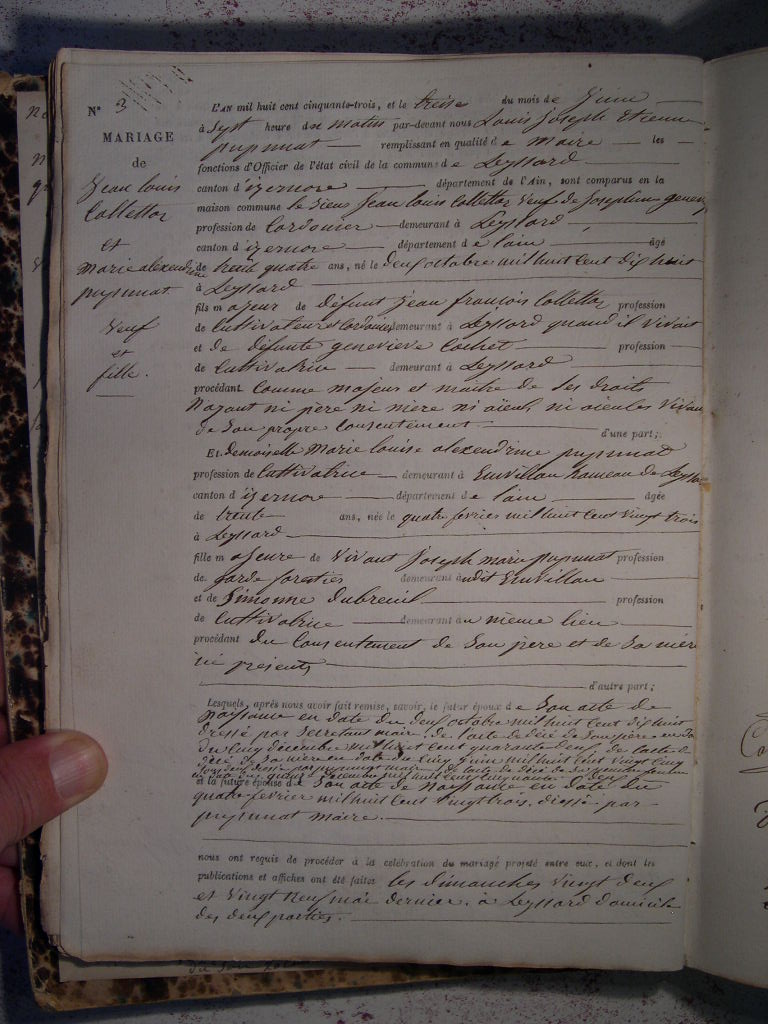 N° 3
MARIAGE
de
Jean louis
Collettaz
et
Marie alexendrine
puysnnat
Veuf
et
fille.
L'AN mil huit cent cinquante-trois, et le treise du mois de Juin
à Sept heure du matin par-devant nous Louis Joseph Etienne
remplissant en qualité de Maire les
fonctions d'Officier de l'état civil de la commune de Leyssard
canton d'izernore département de l'Ain, sont comparus en la
maison commune le Sieur Jean louis Collettaz Veuf de Josephine
profession de Cordonier demeurant à Leyssard
canton d'izernore département de lain âgé
de trente quatre ans, né le deux octobre mil huit Cent dix huit
à Leyssard
fils majeur de défunt jean francois Collettaz profession
de Cultivateur et Cordonier demeurant à Leyssard quand il vivait
et de défunte genevieve Cochet profession
de Cultivatrice demeurant à Leyssard
procédant Comme majeur et maitre de ses droits
N'ayant ni père ni mère ni aïeuls, ni aïeules Vivan
de Son propre Consentement d'une part;
Et demoiselle Marie louise alexendrine
profession de Cultivatrice demeurant à hameau de Leyssard
canton d'izernore département de lain âgée
de trente ans, née le quatre fevrier mil huit Cent Vingt trois
à Leyssard
fille majeure de Vivant Joseph marie profession
de garde forestier demeurant audit
et de Simonne Dubreuil profession
de Cultivatrice demeurant au même lieu
procédant du Consentement de Son père et de Sa mère
ici présents
d'autre part;
Lesquels, après nous avoir fait remise, savoir, le futur époux de Son acte de
Naissance en date du deux octobre mil huit Cent dix huit
dressé par Secretant maire, de l'acte de décé de Son père en da
du Cinq décembre mil huit Cent quarante deux, de l'acte de
décé de Sa mère en date du Cinq Juin mil huit Cent Vingt Cinq
et la future épouse de Son acte de Naissance en date du
quatre fevrier mil huit Cent Vingt trois, dressé par
maire.
nous ont requis de procéder à la célébration du mariage projeté entre eux, et dont les
publications et affiches ont été faites les dimanches Vingt deux
et Vingt Neuf mai dernier, à Leyssard domicile
des deux parties.